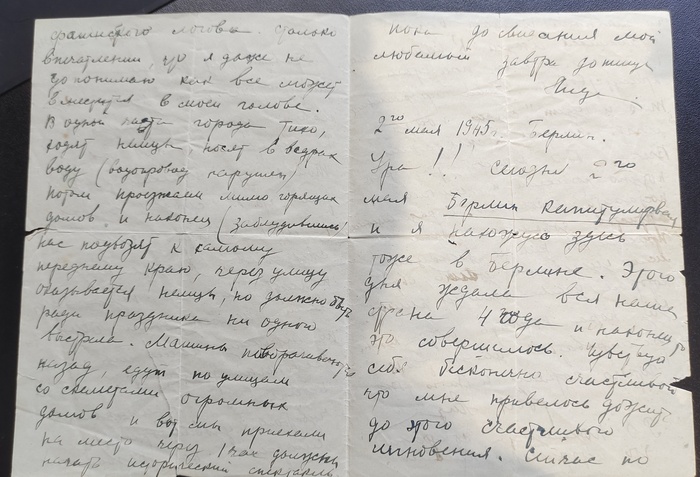 фашистского логова. Столько
впечатлений, что я даже не
понимаю как все может
в моей голове.
В одной части города тихо,
ходят немцы, носят в ведрах
воду (водопровод нарушен)
потом проезжаем мимо горящих
домов и наконец (заблудившись)
нас подвозят к самому
переднему краю, через улицу
оказывается немцы, но должно быть
ради праздника ни одного
выстрела. Машины поворачивают
назад, едут по улицам
со скелетами огромных
домов и вот мы приехали
на место через 1 час должны
начать исторический спектакль
Пока до свидания мой
любимый завтра допишу
2го мая 1945г. Берлин.
Ура!! сегодня 2го
мая Берлин капитулировал
и я нахожусь здесь
тоже в Берлине. Этого
дня ждала вся наша
страна 4 года и наконец
это совершилось. Чувствую
себя бесконечно счастливой
что мне привелось дожить
до этого счастливого
мгновения. Сейчас по